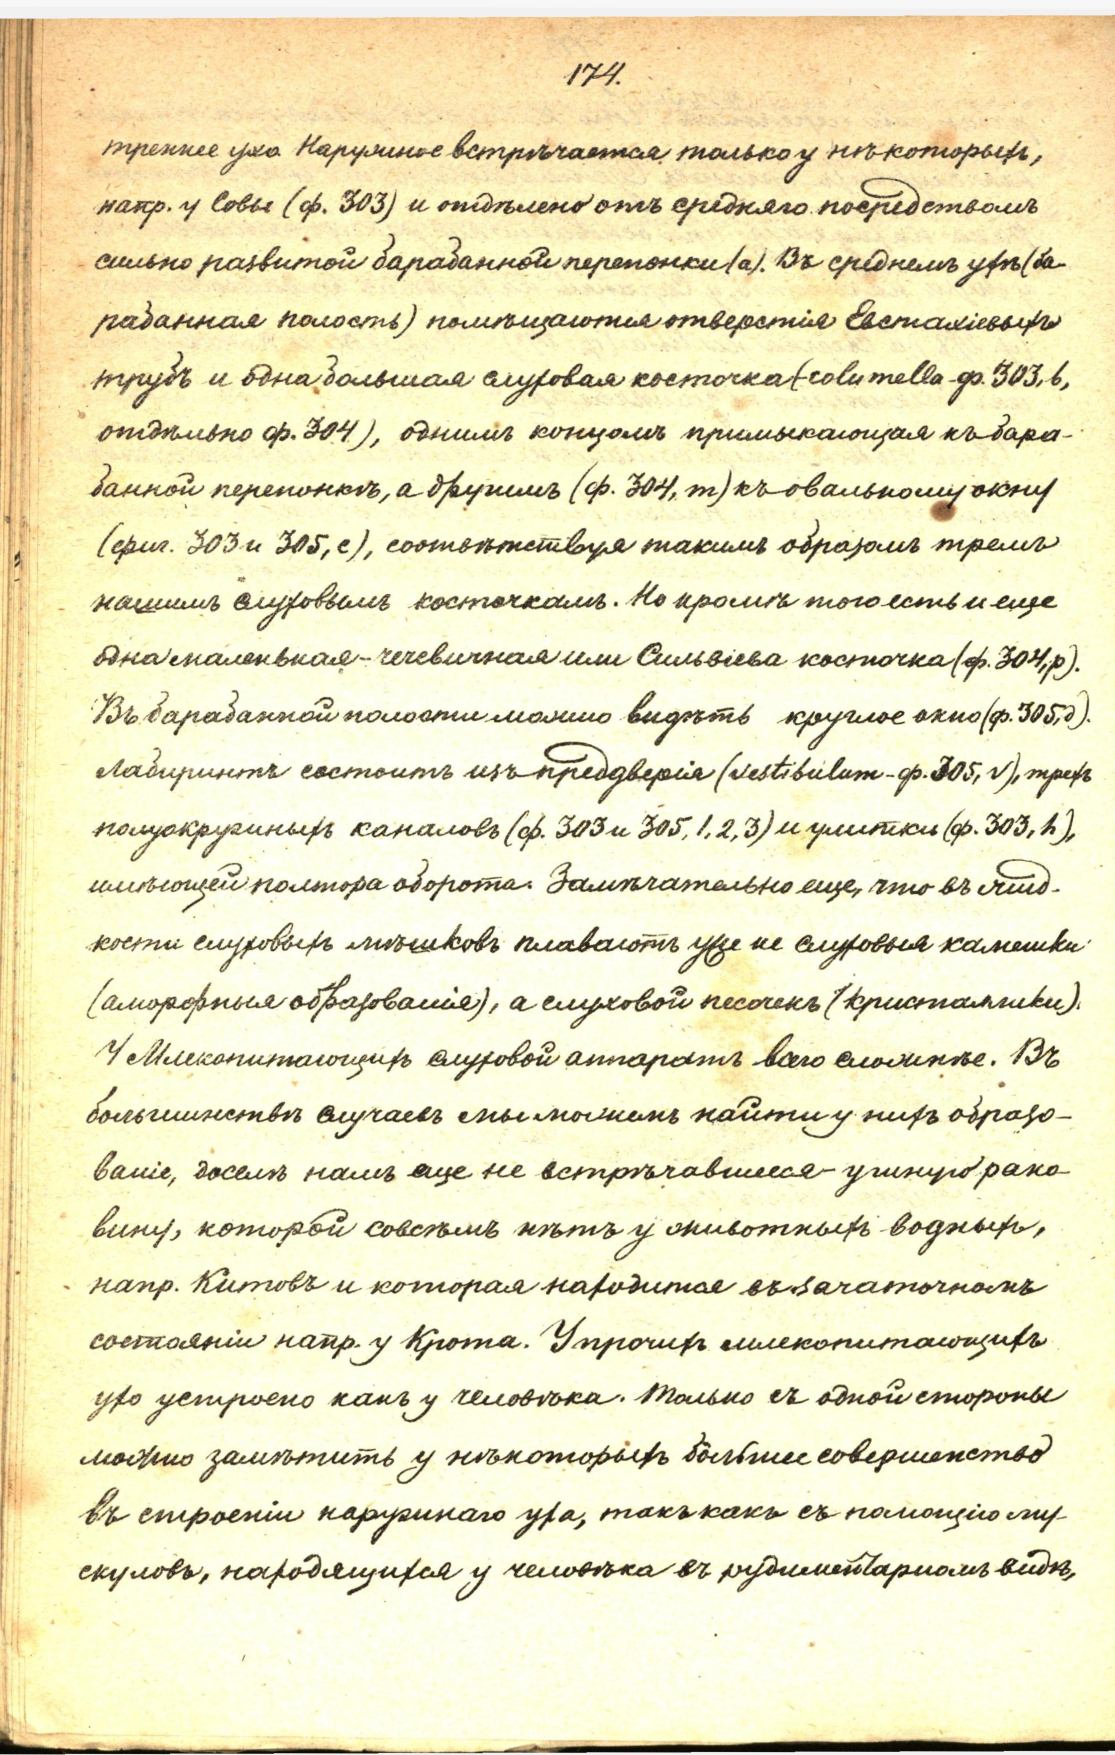 174.
треннее ухо Наружное встрѣчается только у нѣкоторыхъ,
напр. у Совы (ф. 303) и отдѣлено отъ средняго посредствомъ
сильно развитой барабанной перепонки (а). Въ среднемъ ухѣ (ба-
рабанная полость) помѣщаются отверстія Евстахіевыхъ
трубъ и одна большая слуховая косточка (columella - ф. 303, b,
отдѣльно ф. 304), однимъ концомъ примыкающая къ бара-
банной перепонкѣ, а другимъ (ф. 304, m) къ овальному окну
(фиг. 303 и 305, c), соотвѣтствуя такимъ образомъ тремъ
нашимъ слуховымъ косточкамъ. Но кромѣ того есть и еще
одна маленькая - чечевичная или Сильвіева косточка (ф. 304, p).
Въ барабанной полости можно видѣть круглое окно (ф. 305, д).
Лабиринтъ состоитъ изъ преддверія (vestibulum - ф. 305, v), трехъ
полуокружныхъ каналовъ (ф. 303 и 305, 1, 2, 3) и улитки (ф. 303, h),
имѣющей полтора оборота. Замѣчательно еще, что въ жид-
кости слуховыхъ мѣшковъ плаваютъ уже не слуховыя камешки
(аморфныя образованія), а слуховой песочекъ (кристаллики).
У Млекопитающихъ слуховой аппаратъ всего сложнѣе. Въ
большинствѣ случаевъ мы можемъ найти у нихъ образо-
ваніе, доселѣ намъ еще не встрѣчавшееся - ушную рако-
вину, которой совсѣмъ нѣтъ у животныхъ водныхъ,
напр. Китовъ и которая находится въ зачаточномъ
состояніи напр. у Крота. У прочихъ млекопитающихъ
ухо устроено какъ у человѣка. Только съ одной стороны
можно замѣтить у нѣкоторыхъ большее совершенство
въ строеніи наружнаго уха, такъ какъ съ помощію му-
скуловъ, находящихся у человѣка въ рудиментарномъ видѣ,